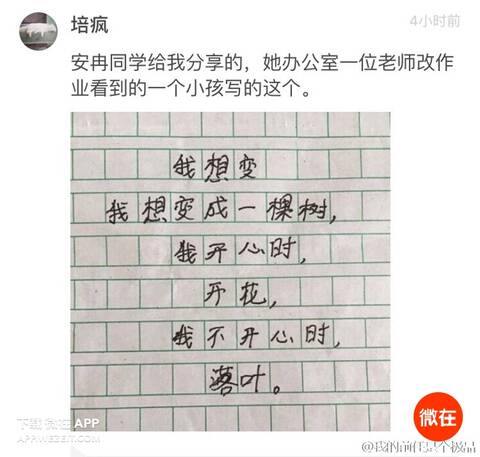 培疯
4小时前
安冉同学给我分享的，她办公室一位老师改作
业看到的一个小孩写的这个。
我想变
我想变成一棵树，
我开心时，
开花，
我不开心时，
落叶。
微在
下载 微在 APP
APP.WEZEIT.COM
@我的前任是个极品